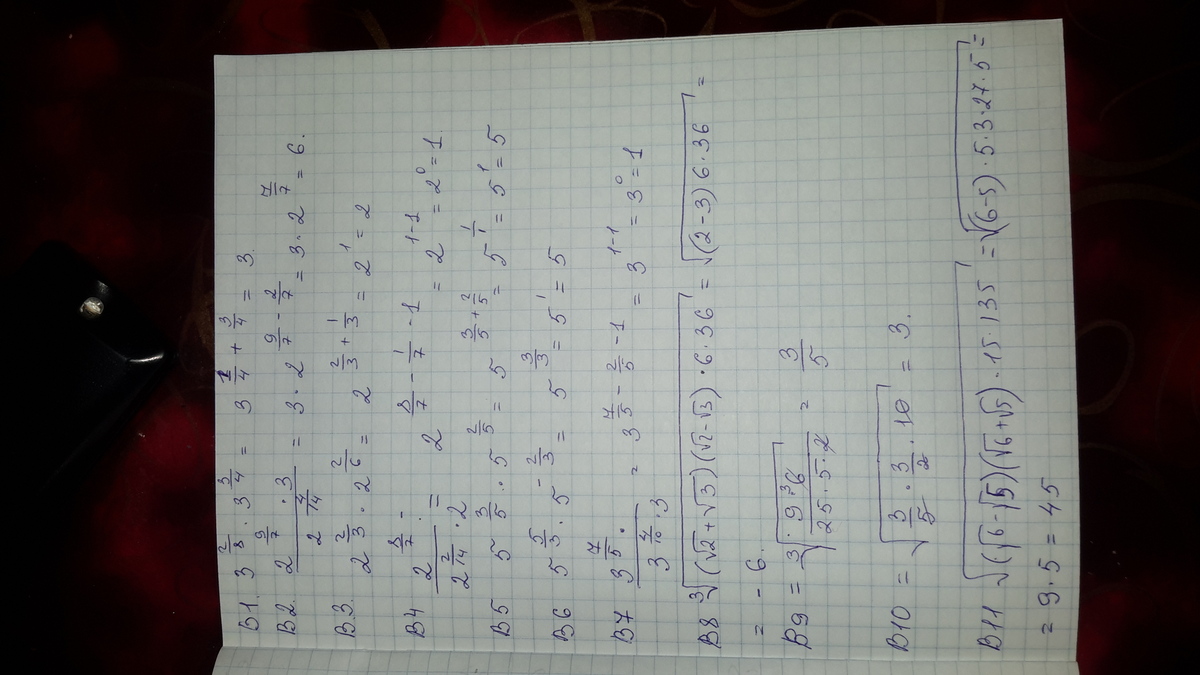 В1. 3^(2/8) · 3^(3/4) = 3^(1/4 + 3/4) = 3.
В2. (2^(9/7) · 3)/(2^(4/14)) = 3 · 2^(9/7 - 2/7) = 3 · 2^(7/7) = 6.
В3. 2^(2/3) · 2^(2/6) = 2^(2/3 + 1/3) = 2^1 = 2
В4 2^(8/7)/(2^(2/14) · 2) = 2^(8/7 - 1/7 - 1) = 2^(1-1) = 2^0 = 1.
В5 5^(3/5) · 5^(2/5) = 5^(3/5 + 2/5) = 5^(1/1) = 5^1 = 5
В6 5^(5/3) · 5^(-2/3) = 5^(3/3) = 5^1 = 5
В7 3^(7/5)/(3^(4/10) · 3) = 3^(7/5 - 2/5 - 1) = 3^(1-1) = 3^0 = 1
В8 ∛((√2+√3)(√2-√3) · 6 · 36) = √((2-3) 6 · 36) =
= - 6.
В9 = ∛((9 · 6)/(25 · 5 · 2)) = 3/5
В10 = √(3/5 · 3/2 · 10) = 3.
В11 √((√6-√5)(√6+√5) · 15 · 135) = √((6-5) · 5 · 3 · 27 · 5) =
= 9 · 5 = 45